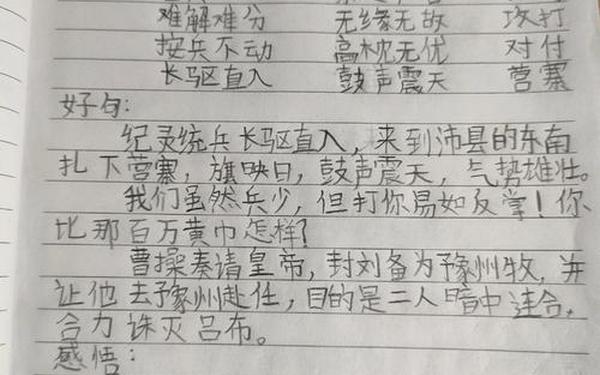 难解难分 无缘无故 攻打
按兵不动 高枕无优 对付
长驱直入 鼓声震天 营寨
好句：
纪灵统兵长驱直入，来到沛县的东南
扎下营寨，旗映日，鼓声震天，气势雄壮。
我们虽然兵少，但打你易如反掌！你
比那百万黄巾怎样？
曹操奏请皇帝，封刘备为豫州牧，并
让他去豫州赴任，目的是二人暗中连合，
合力诛灭吕布。
感悟：